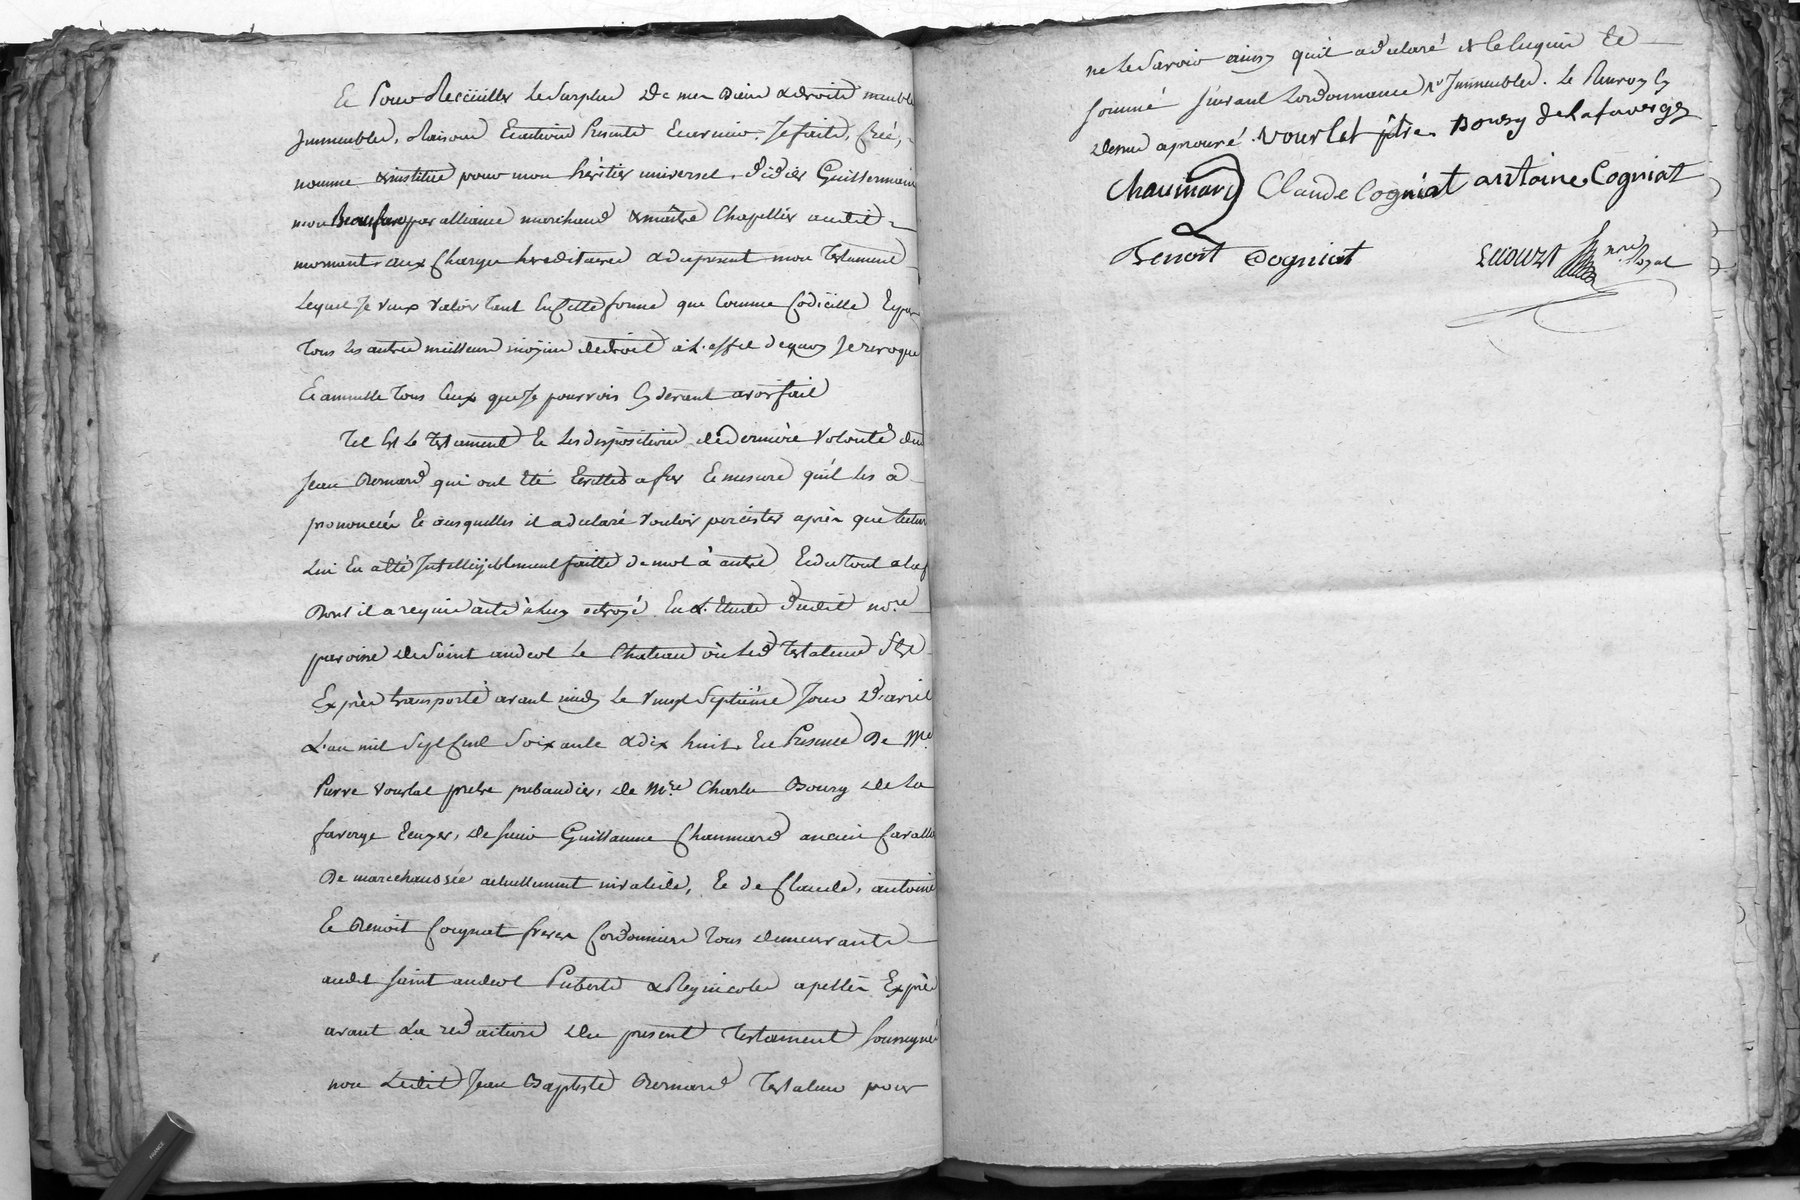 Et Pour Recüeillir Le Surplus De mes Biens & droits meubles
Immeubles, Raisons Et actions Presents Et avenir, Je fais, Créé,
nomme & institue pour mon héritier universel, Didier Guillermain
mon Beaufrere par alliance marchand & maitre Chapellier audit
mornant, aux Charges hereditaires & du present mon Testament
Lequel Je veux valoir tant En Cette forme que Comme Codicille Et par
Tous les autres meilleurs moÿens de droit à L'effet de quoy Je revoque
Et annulle Tous Ceux que Je pourrois Cy devant avoir fait
Tel Est Le Testament Et Les dispositions de Derniere Volonté du
Jean Bernard qui ont Eté Ecrittes a fur Et mesure qu'il les a
prononcées Et ausquelles il a déclaré vouloir percister après que lecture
Lui En a Eté Intelligiblement faitte de mot à autre Et du tout
Dont il a requis acte à Luy octroyé En L'Etude dudit nore
paroisse de Saint andeol Le Chateau où Led Testateur S'est
Exprès transporté avant midy Le Vingt Septième Jour D'avril
L'an mil Sept Cent Soixante & dix huit, En Presence De Mre
Pierre Vourlat pretre prebandier, de Mre Charles Boury De La
faverge Ecuyer, de sieur Guillaume Chaumard ancien Cavallier
De marechaussée actuellement invalide, Et de Claude, antoine
Et Benoit Cogniat freres Cordonniers Tous demeurants
audit Saint andeol Puberts & Regnicoles apellés Exprès
avant La redaction du present Testament Soussignés
non Ledit Jean Baptiste Bernard Testateur pour
ne Le Savoir ainsy qu'il a declaré & de ce enquis Et
Sommé suivant L'ordonnance Immeubles. Le Renvoy Cy
dessus aprouvé. Vourlat ptre Boury de Lafaverge
Chaumard Claude Cogniat antoine Cogniat
Benoit Cogniat nre Royal